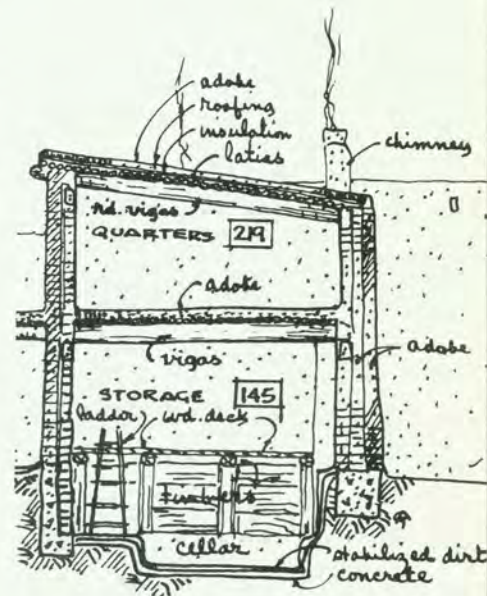 adobe
roofing
insulation
latias
chimney
rd. vigas
QUARTERS 219
adobe
adobe
vigas
STORAGE 145
ladder wd. deck
timbers
cellar
stabilized dirt
concrete